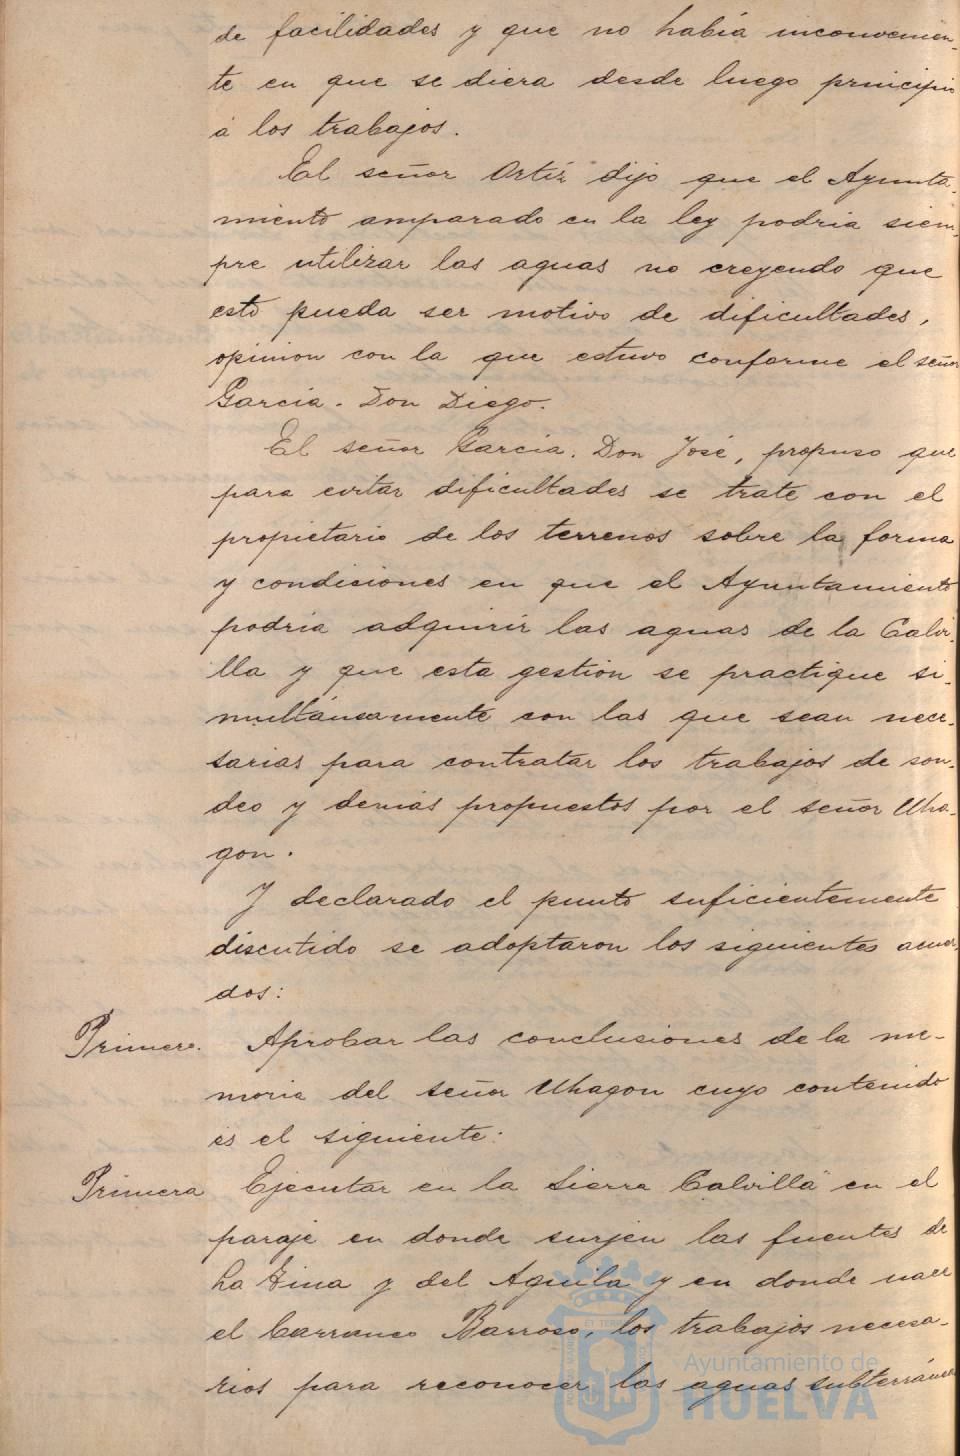 de facilidades y que no había inconvenien-
te en que se diera desde luego principio
á los trabajos.
El señor Ortiz dijo que el Ayunta-
miento amparado en la ley podria siem-
pre utilizar las aguas no creyendo que
esto pueda ser motivo de dificultades,
opinion con la que estuvo conforme el señor
Garcia. Don Diego.
El señor Garcia. Don José, propuso que
para evitar dificultades se trate con el
propietario de los terrenos sobre la forma
y condiciones en que el Ayuntamiento
podria adquirir las aguas de la Calvi-
lla y que esta gestión se practique si-
multáneamente con las que sean nece-
sarias para contratar los trabajos de son-
deo y demás propuestos por el señor Uha-
gon.
Y declarado el punto suficientemente
discutido se adoptaron los siguientes acuer-
dos:
Primero. Aprobar las conclusiones de la me-
moria del señor Uhagon cuyo contenido
es el siguiente:
Primera Ejecutar en la Sierra Calvilla en el
paraje en donde surjen las fuentes de
La y del Aguila y en donde nace
el barranco Barroso, los trabajos necesa-
rios para reconocer las aguas subterráneas
PORTUS MARIS ET TERRAE CUSTODIA
Ayuntamiento de
HUELVA